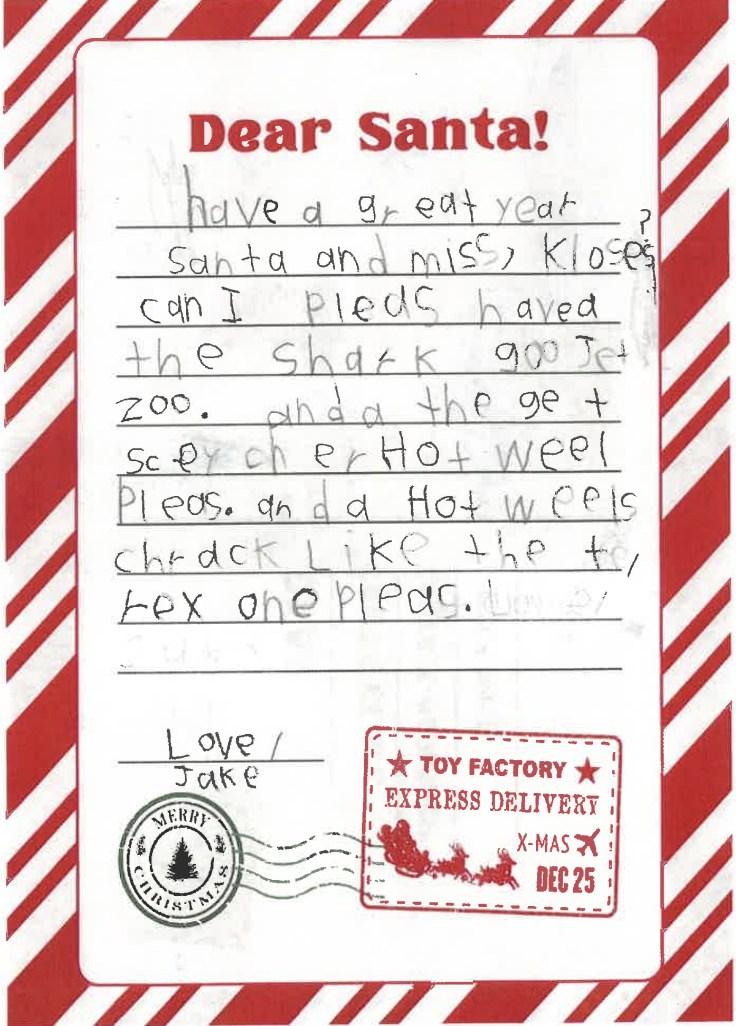 Dear Santa!
have a great year
Santa and miss, Kloses?
can I pleas haved
the Shark goo Jet
zoo. and a the get
sceycher Hot weel
Pleas. and a Hot weels
chrack Like the t,
rex one Pleas.
Love,
Jake
MERRY
CHRISTMAS
★ TOY FACTORY ★
EXPRESS DELIVERY
X-MAS
DEC 25